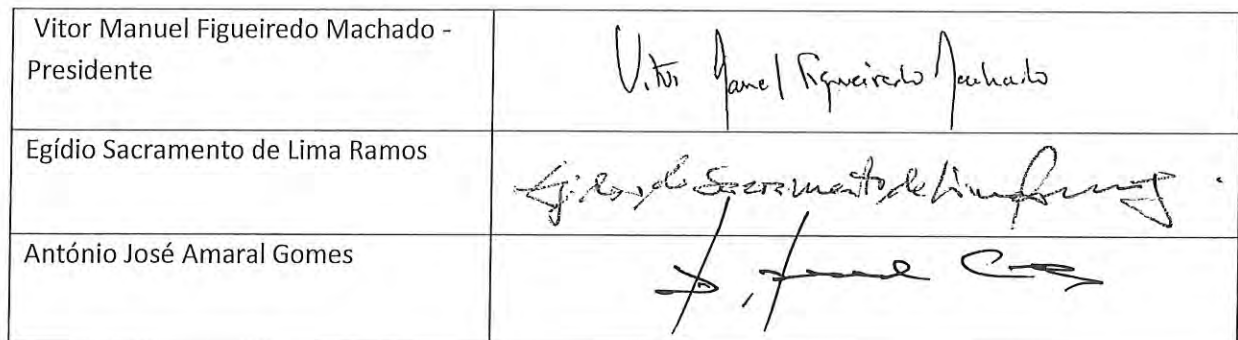 Vitor Manuel Figueiredo Machado -
Presidente
Vitor Manuel Figueiredo Machado
Egídio Sacramento de Lima Ramos
Egídio do Sacramento de Lima Ramos
António José Amaral Gomes